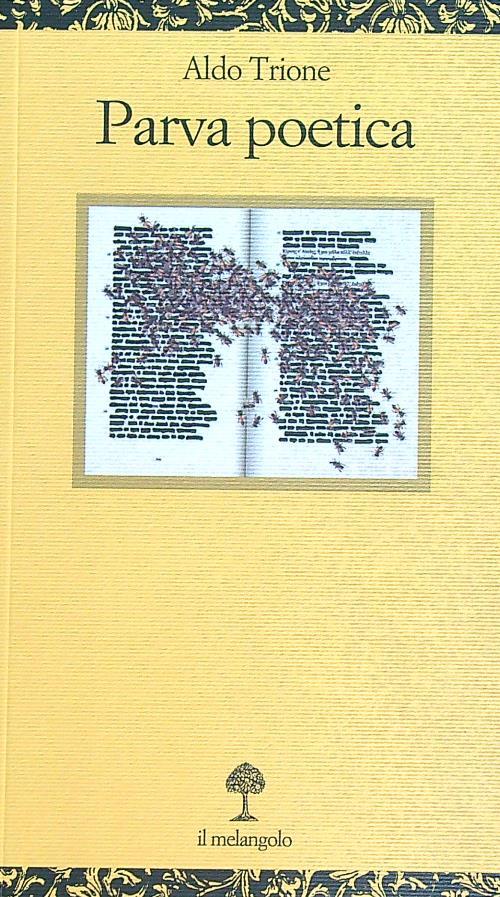 Aldo Trione
Parva poetica
il melangolo